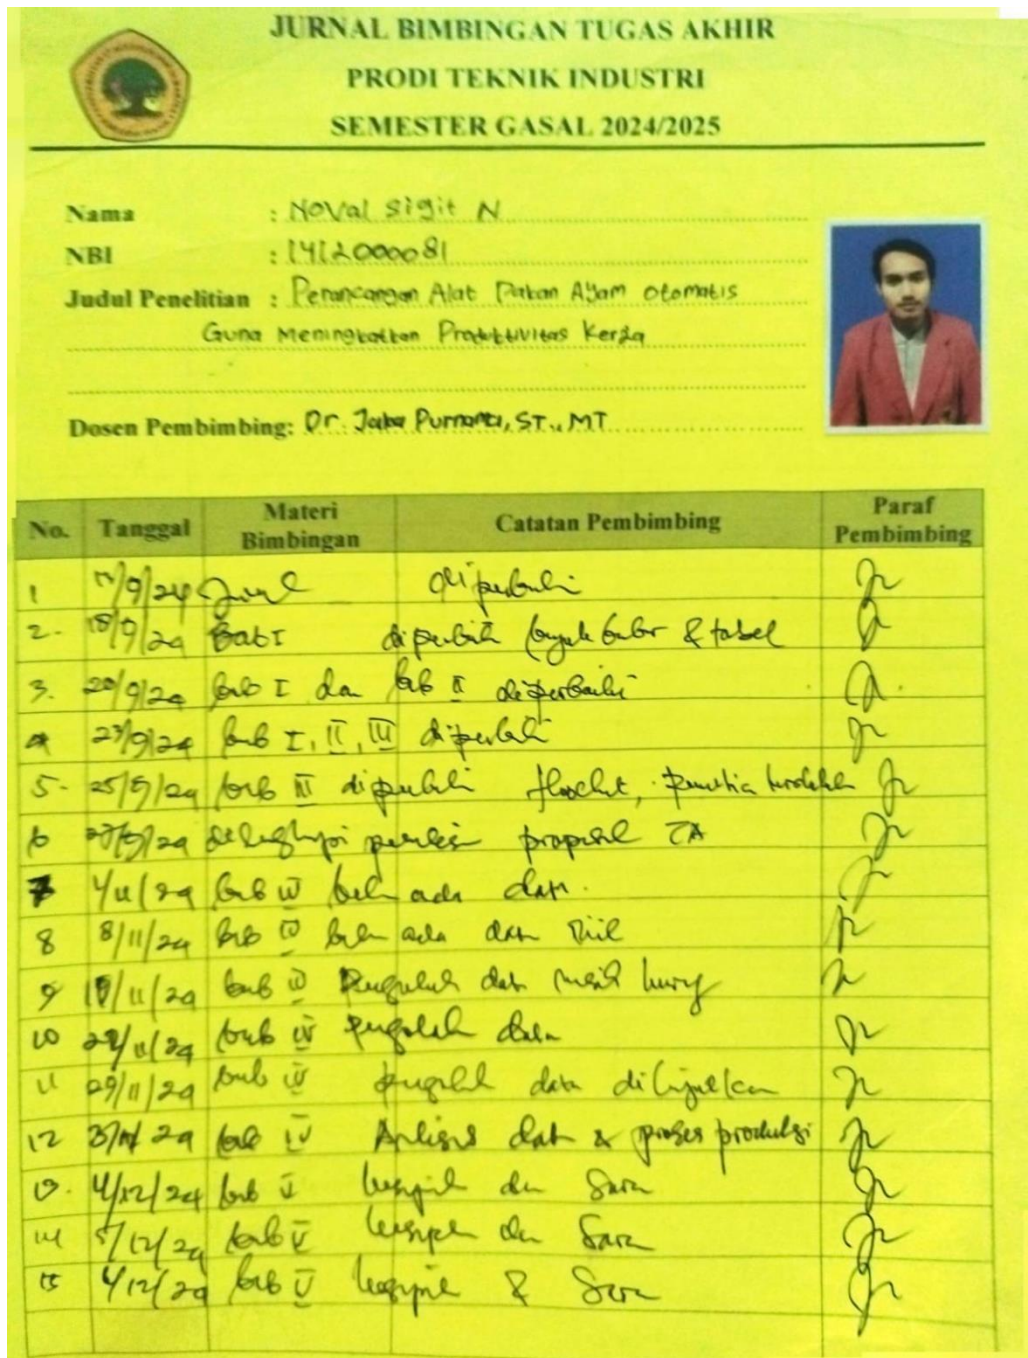 JURNAL BIMBINGAN TUGAS AKHIR
PRODI TEKNIK INDUSTRI
SEMESTER GASAL 2024/2025
Nama : Noval Sigit N
NBI : 1412000081
Judul Penelitian : Perancangan Alat Pakan Ayam Otomatis
Guna Meningkatkan Produktivitas Kerja
Dosen Pembimbing: Dr. Jaka Purnama, ST., MT
No. Tanggal Materi Bimbingan Catatan Pembimbing Paraf Pembimbing
1 /9/24 diperbaiki
2. 18/9/24 Bab I diperbaiki & tabel
3. 20/9/24 bab I dan bab II diperbaiki
4 23/9/24 bab I, II, III diperbaiki
5. 25/9/24 bab III diperbaiki
6 /9/24 proposal TA
7 4/11/24 bab IV belum ada data.
8 8/11/24 bab IV belum ada data riil
9 /11/24 bab IV data masih
10 /11/24 bab IV pengolah data
11 29/11/24 bab IV pengolah data dilanjutkan
12 24 bab IV Analisis data & proses produksi
13. 4/12/24 bab V kesimpulan dan Saran
14 5/12/24 bab V kesimpulan dan Saran
15 4/12/24 bab V kesimpulan & Saran